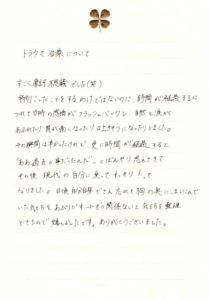 トラウマ治療について
すごく摩訶不思議でした(笑)
特別こったことをするわけではないのに、時間が経過するに
つれて当時の感情がフラッシュバックし、自然と涙が
あふれたり、胃が痛くなったり吐きそうになったりしました。
その瞬間は辛かったけれど、更に時間が経過すると
"ああ過去の事だったんだ"とはんやり思えてきて
その後 現代の自分に戻ってすっきり!って
なりました。日頃自分自身でさえ忘れて胸の奥にしまいこんで
いた気持ちをあぶりだす
もう関係ないと気もちを整理
できたので嬉しかったです。ありがとうございました。